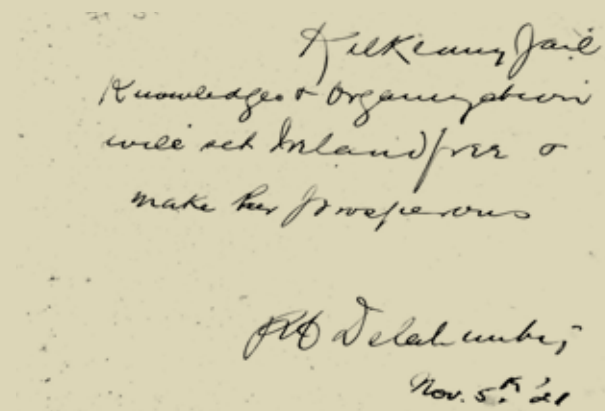 Kilkenny Jail
Knowledge & Organization
will set Ireland free &
make her prosperous
Delahunty
Nov. 5th '21